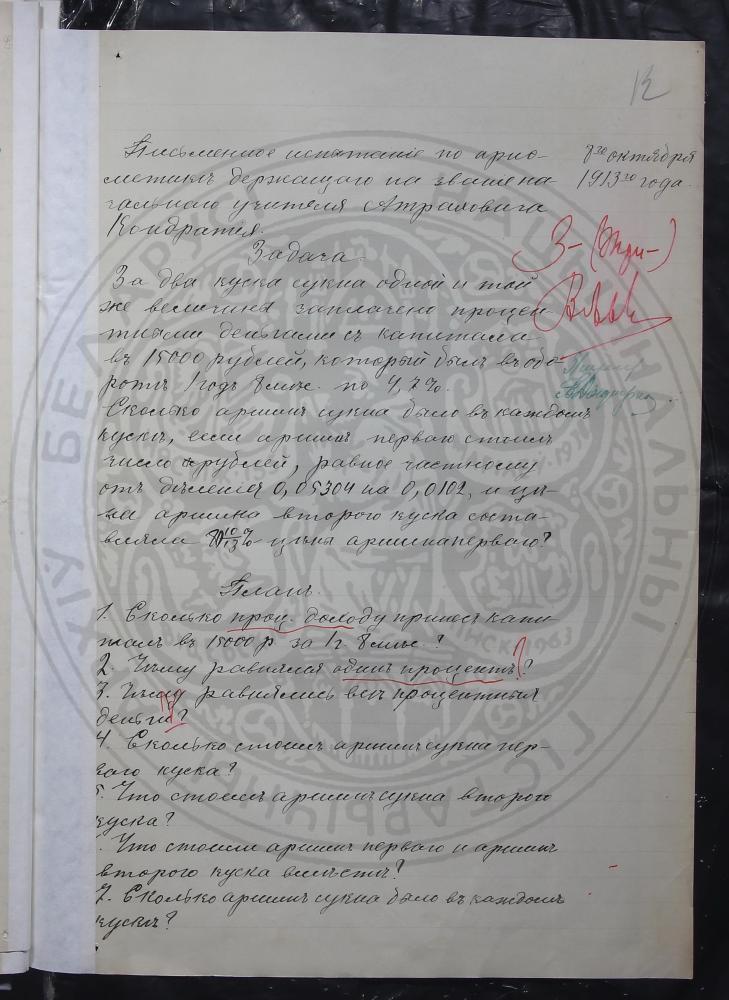 12
Письменное испытание по ариѳ-
метикѣ держащаго на званіе на-
чальнаго учителя Атраховича
Кондратія.
8го октября
1913го года.
Задача.
3- (три-)
За два куска сукна одной и той
же величины заплачено процен-
тными деньгами съ капитала
въ 15000 рублей, который былъ въ обо-
ротѣ 1 годъ 8 мѣс. по 4,7%.
Сколько аршинъ сукна было въ каждомъ
кускѣ, если аршинъ перваго стоитъ
число рублей, равное частному
отъ дѣленія 0,05304 на 0,0102, и цѣ-
на аршина второго куска соста-
вляла 10/13 цѣны аршина перваго?
Планъ.
1. Сколько проц. доходу принесъ капи-
талъ въ 15000 р. за 1 г. 8 мѣс.?
2. Чему равнялся одинъ процентъ?
3. Чему равнялись всѣ процентныя
деньги?
4. Сколько стоитъ аршинъ сукна пер-
ваго куска?
5. Что стоитъ аршинъ сукна второго
куска?
Что стоили аршинъ перваго и аршинъ
второго куска вмѣстѣ?
7. Сколько аршинъ сукна было въ каждомъ
кускѣ?